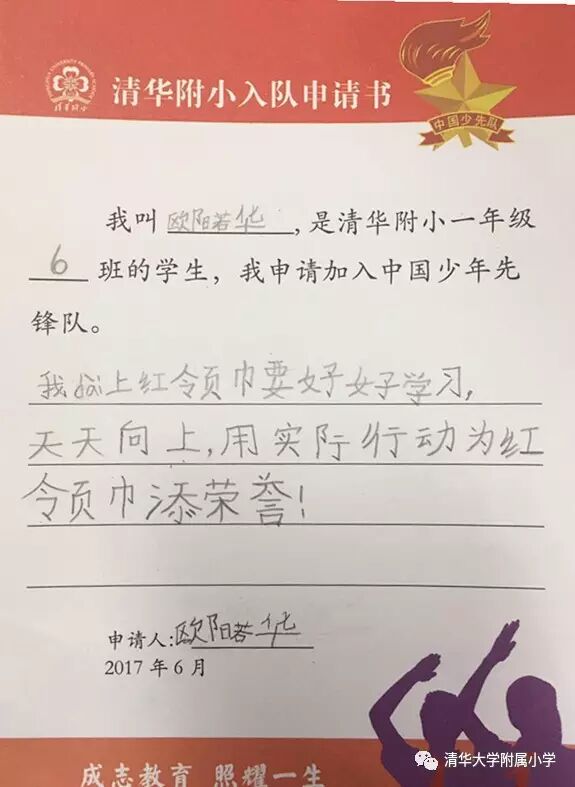 清华附小入队申请书
中国少先队
清华附小
我叫 欧阳若华,是清华附小一年级
6 班的学生，我申请加入中国少年先
锋队。
上红领巾要好好学习,
天天向上,用实际行动为红
领巾添荣誉!
申请人:欧阳若华
2017 年 6 月
成志教育 照耀一生
清华大学附属小学